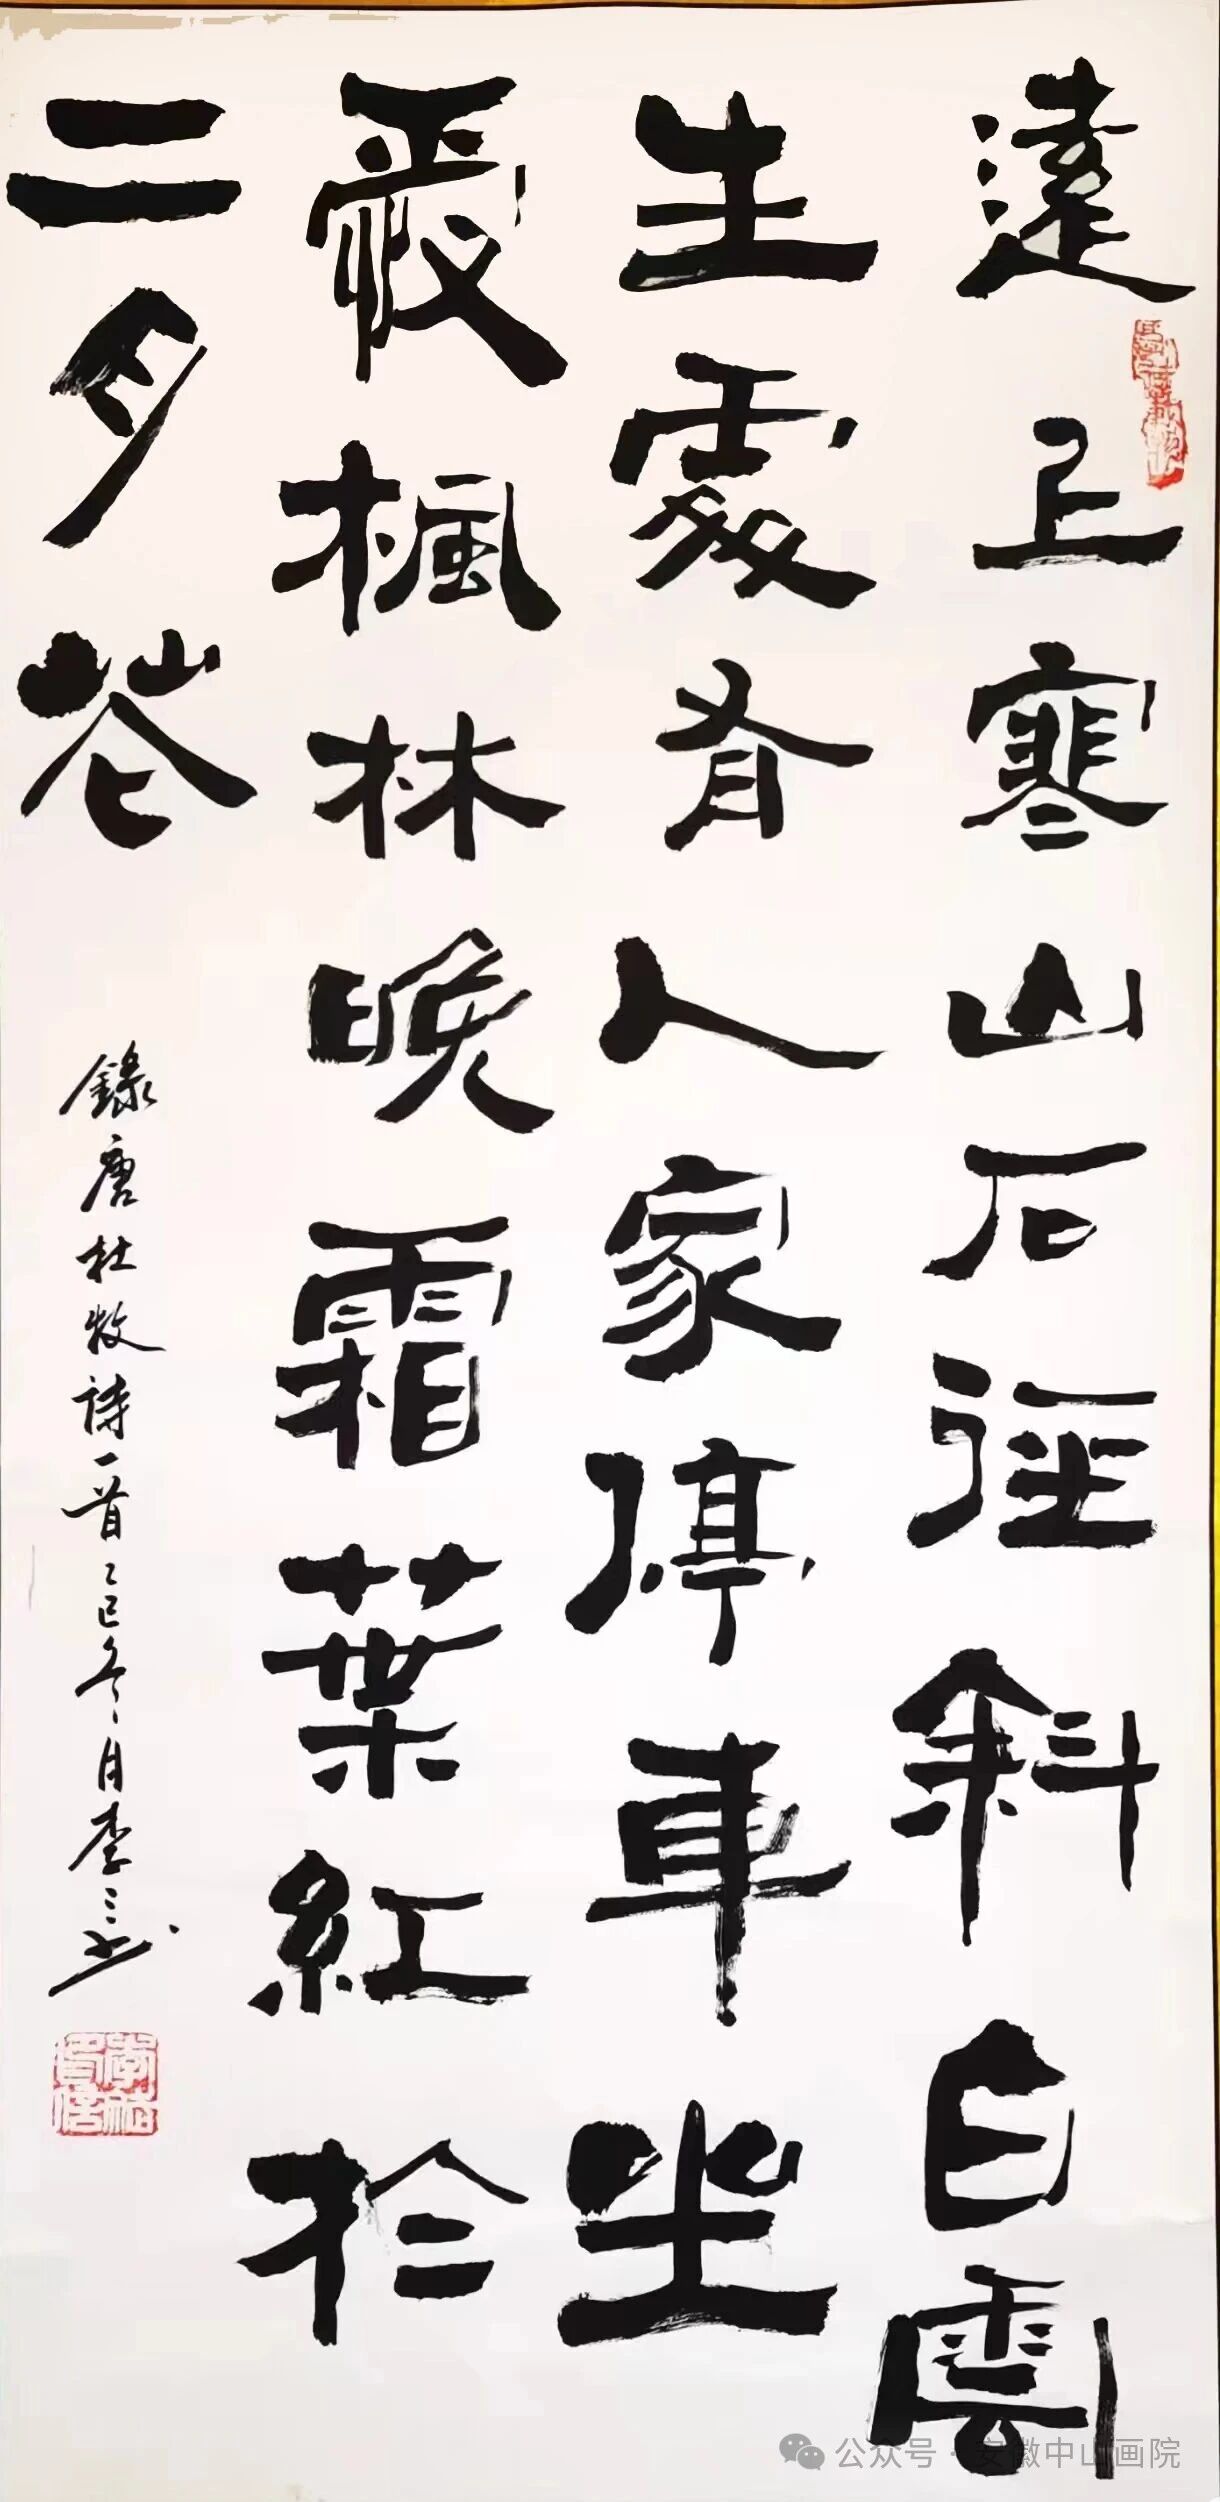 遠上寒山石徑斜白雲
生處有人家停車坐
愛楓林晚霜葉紅於
二月花
錄唐杜牧詩一首乙巳冬月李
公众号·安徽中山画院